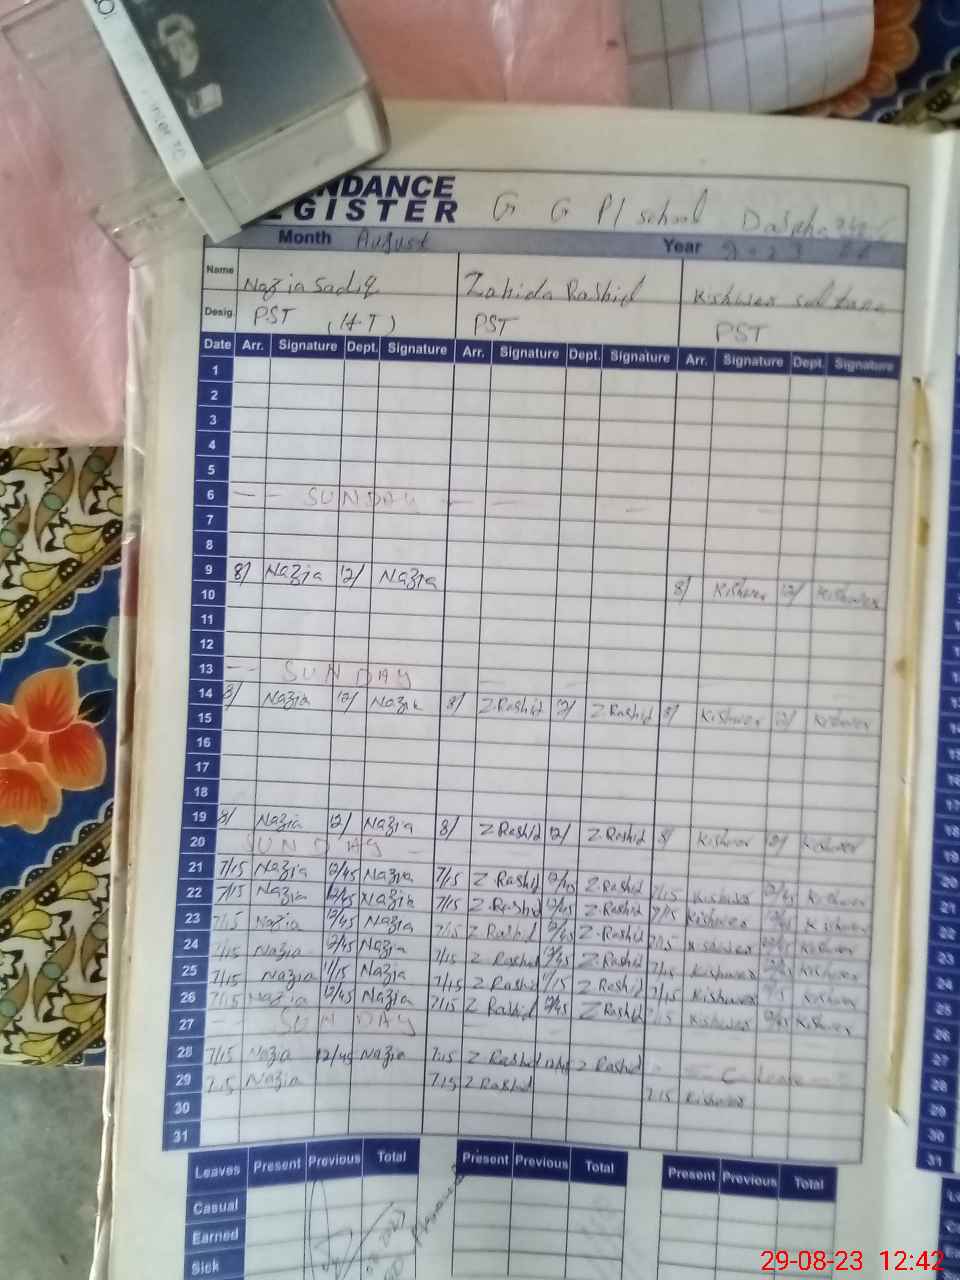 NDANCE
GISTER G G P/ school
Month August Year 2023
Name Nazia Sadiq Zahida Rashid Kishwer
Desig. PST (H-T) PST PST
Date Arr. Signature Dept. Signature Arr. Signature Dept. Signature Arr. Signature Dept. Signature
1
2
3
4
5
6 -- SUNDAY -- --
7
8
9 8/ Nazia 12/ Nazia
10 8/ Kishwer 12/ Kishwer
11
12
13 -- SUNDAY
14 8/ Nazia 12/ Nazia 8/ Z.Rashid 12/ Z.Rashid 8/ Kishwer 12/ Kishwer
15
16
17
18
19 8/ Nazia 12/ Nazia 8/ Z Rashid 12/ Z Rashid 8/ Kishwer 12/ Kishwer
20 SUNDAY
21 7/15 Nazia 12/45 Nazia 7/15 Z Rashid 12/45 Z.Rashid 7/15 Kishwer 12/45 Kishwer
22 7/15 Nazia 12/45 Nazia 7/15 Z.Rashid 12/45 Z Rashid 7/15 Kishwer 12/45 Kishwer
23 7/15 Nazia 12/45 Nazia 7/15 Z Rashid 12/45 Z.Rashid 7/15 Kishwer 12/45 Kishwer
24 7/15 Nazia 12/45 Nazia 7/15 Z Rashid 12/45 Z Rashid 7/15 Kishwer 12/45 Kishwer
25 7/15 Nazia 11/15 Nazia 7/15 Z Rashid 11/15 Z Rashid 7/15 Kishwer Kishwer
26 7/15 Nazia 12/45 Nazia 7/15 Z Rashid 12/45 Z Rashid 7/15 Kishwer 12/45 Kishwer
27 -- SUNDAY
28 7/15 Nazia 12/45 Nazia 7:15 Z Rashid 12/45 Z Rashid C Leave
29 7.15 Nazia 7:15 Z Rashid 7.15 Kishwer
30
31
Leaves Present Previous Total Present Previous Total Present Previous Total
Casual
Earned
Sick
29-08-23 12:42